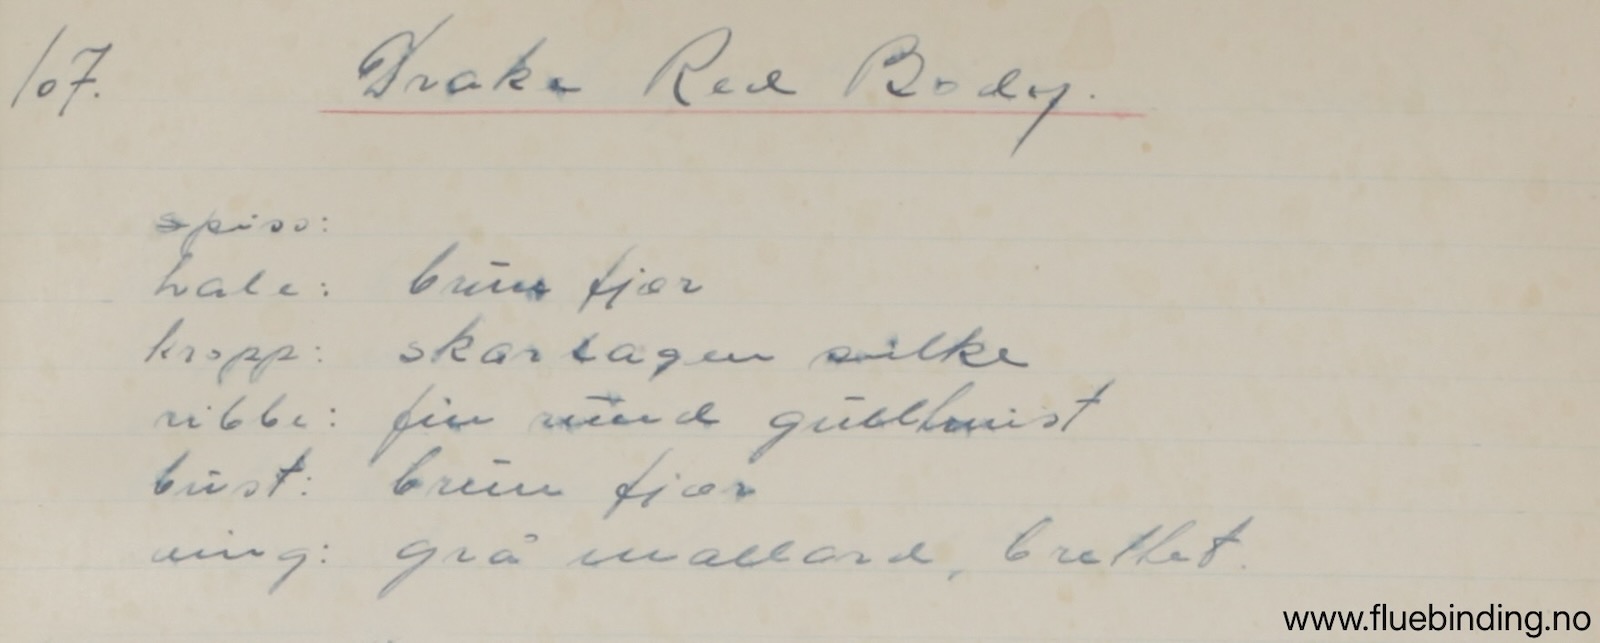 107. Drake Red Body.
spiss:
hale: brun fjær
kropp: skarlagen silke
ribbe: fin rund gulltwist
bust: brun fjær
ving: grå mallard, brettet.
www.fluebinding.no